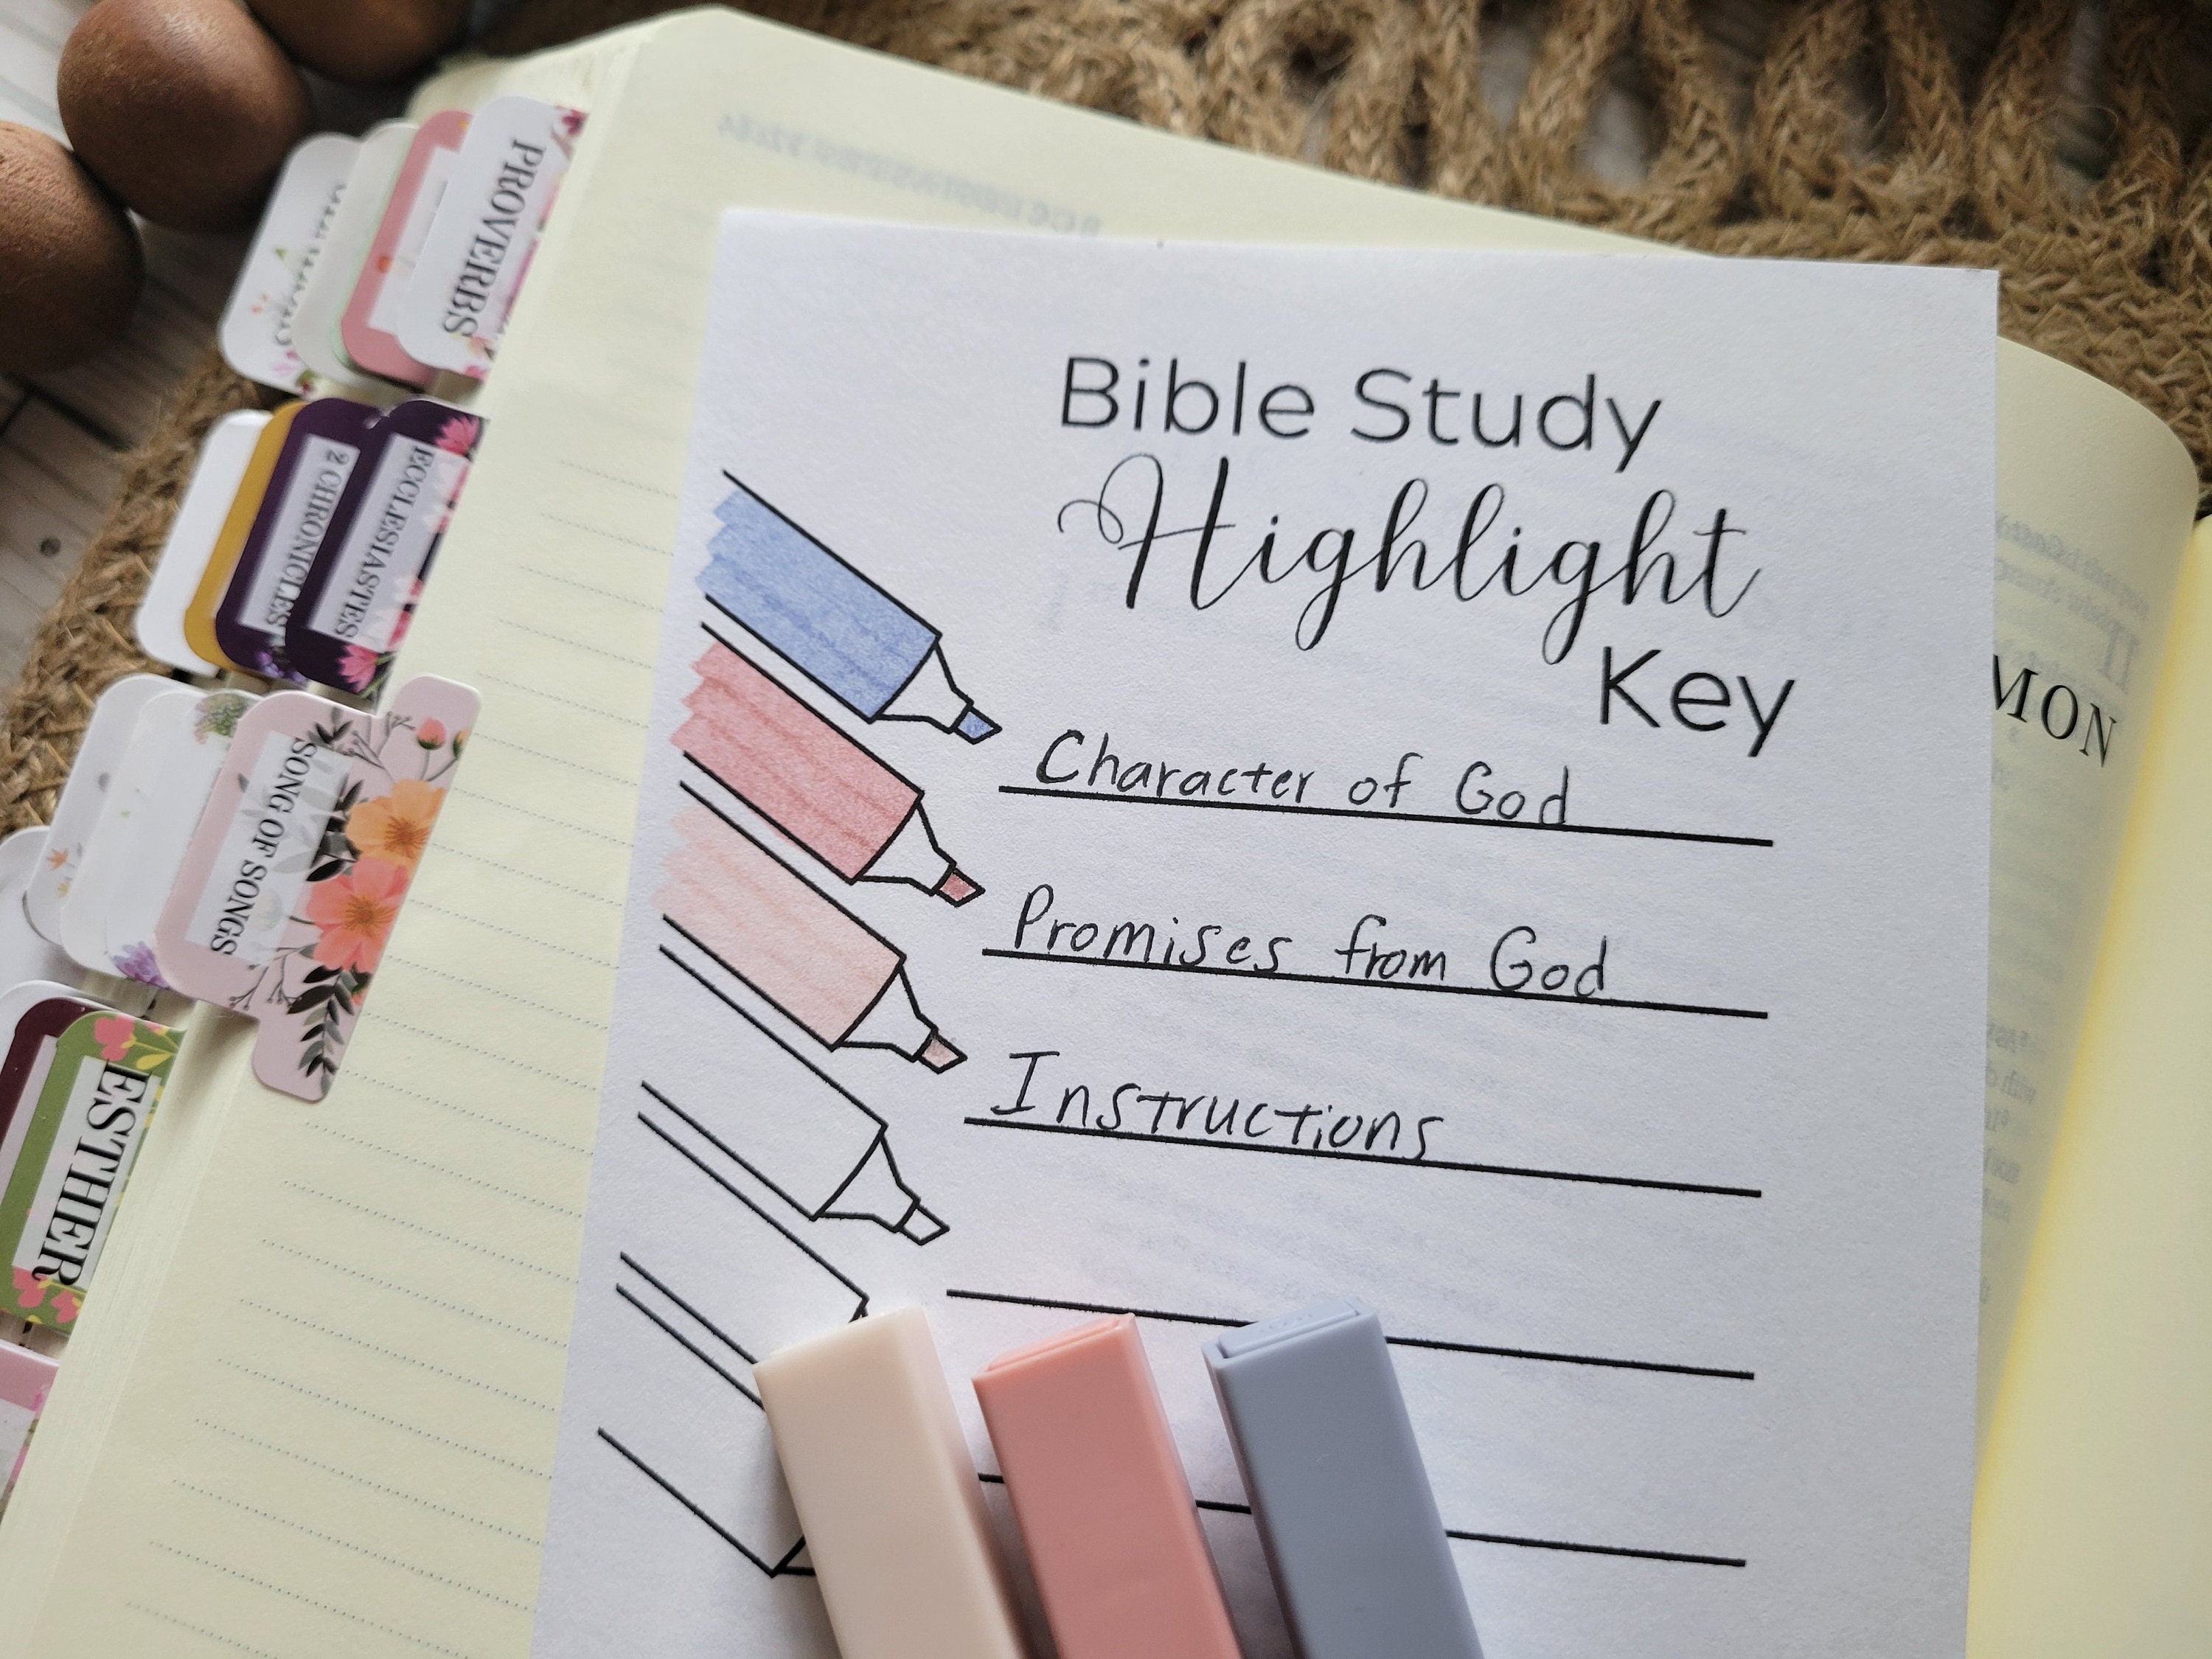 PROVERBS
2 CHRONICLES
ECCLESIASTES
SONG OF SONGS
ESTHER
Bible Study
Highlight
Key
MON
Character of God
Promises from God
Instructions